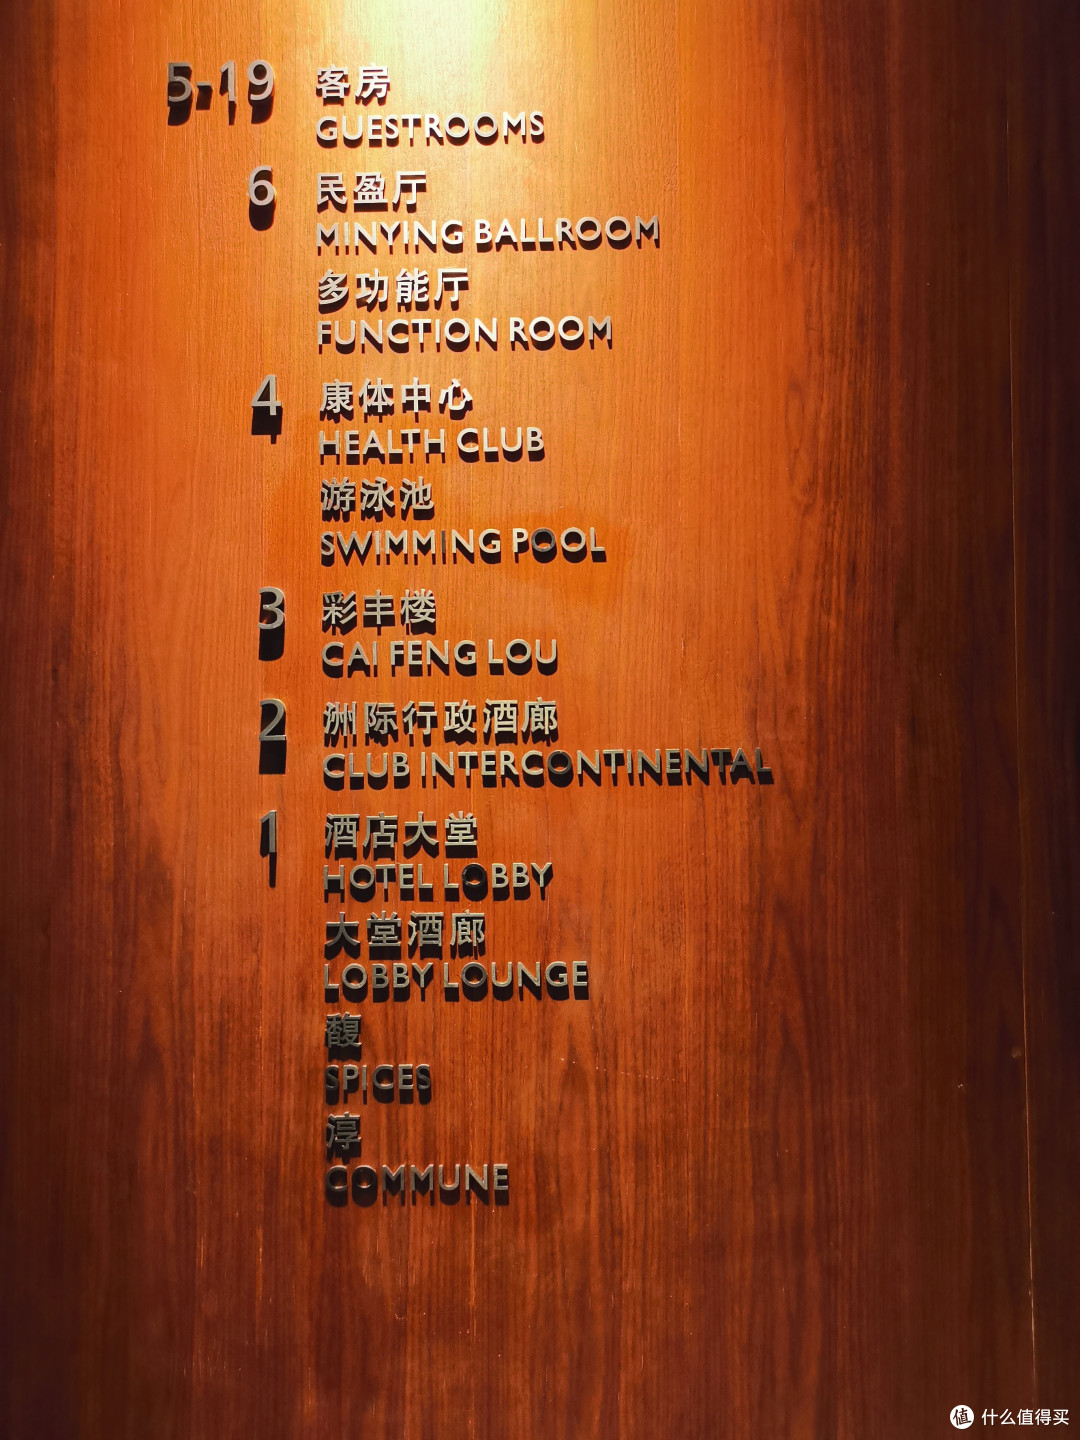 5-19 客房
GUESTROOMS
6 民盈厅
MINYING BALLROOM
多功能厅
FUNCTION ROOM
4 康体中心
HEALTH CLUB
游泳池
SWIMMING POOL
3 彩丰楼
CAI FENG LOU
2 洲际行政酒廊
CLUB INTERCONTINENTAL
1 酒店大堂
HOTEL LOBBY
大堂酒廊
LOBBY LOUNGE
馥
SPICES
淳
COMMUNE
值 什么值得买